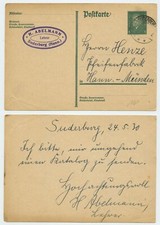 Postkarte
H. ABELMANN
Lehrer
Suderburg (Hann.)
Herrn Henze
Pfeifenfabrik
Hann.-Münden
Suderburg, 24.5.30
Ich bitte, mir umgehend
einen Katalog zu senden.
Hochachtungsvoll
H. Abelmann,
Lehrer